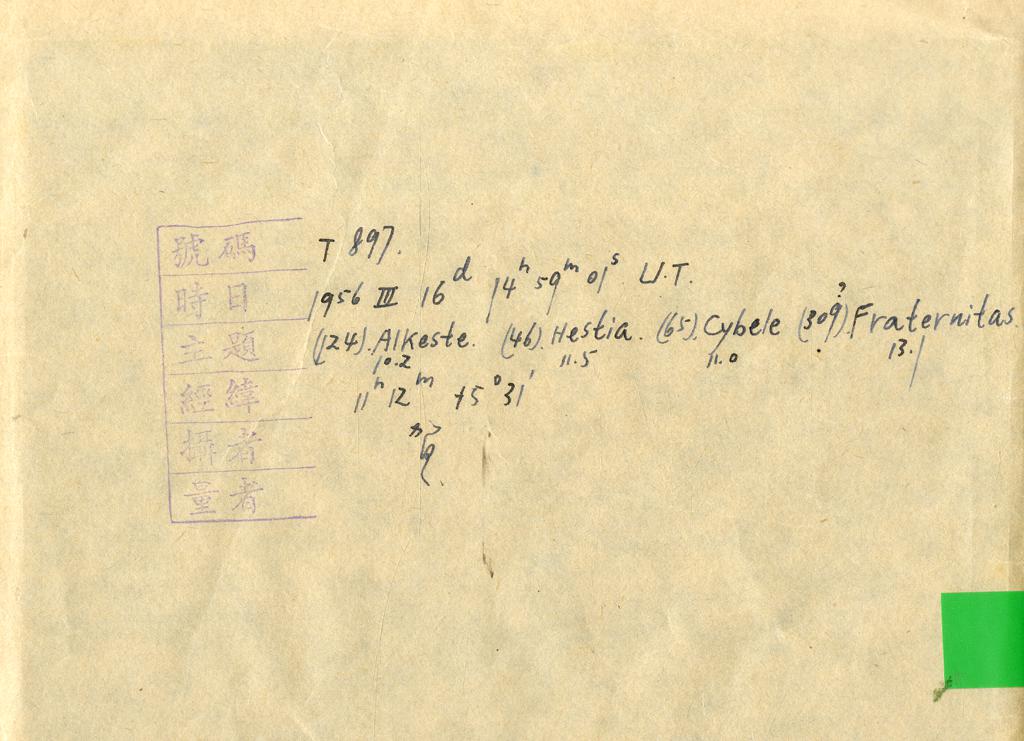 號碼 T 897.
時日 1956 III 16d 14h 59m 01s U.T.
主題 (124). Alkeste. (46). Hestia. (65). Cybele (309)? Fraternitas.
10.2 11.5 11.0 13.1
經緯 11h 12m +5° 31'
攝者
量者